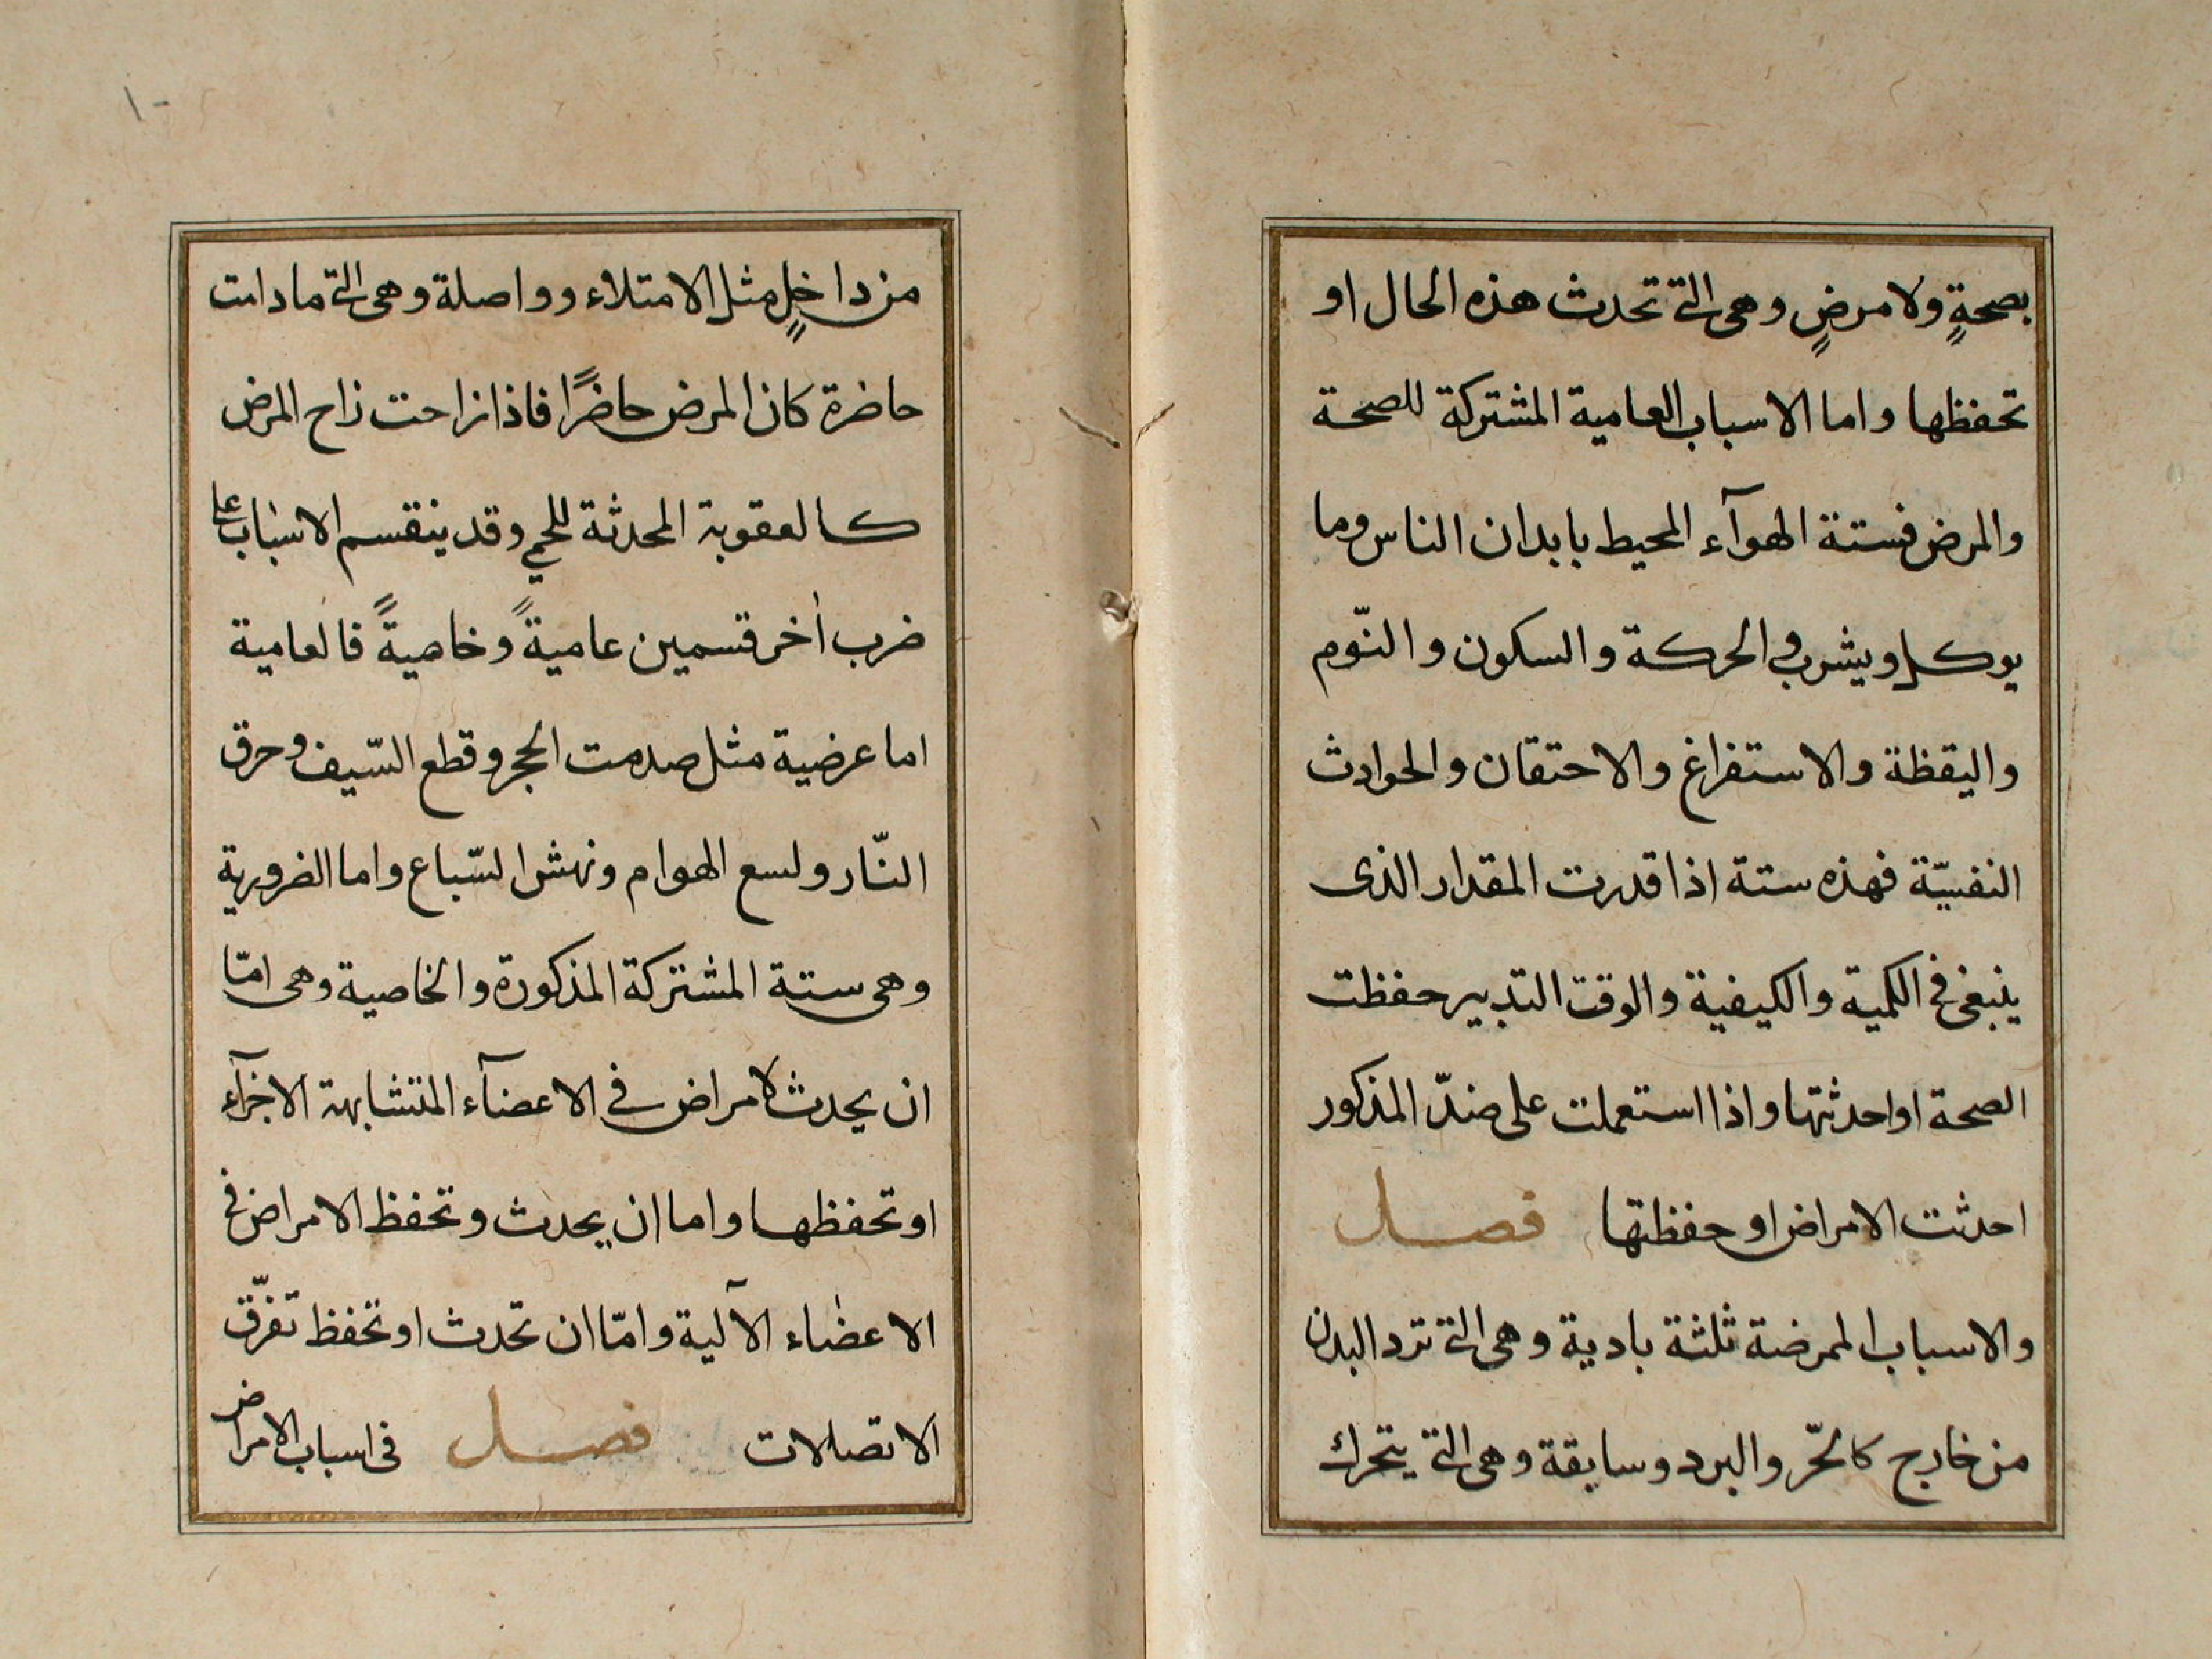 بصحةٍ ولا مرضٍ وهى التى تحدث هذه الحال او
تحفظها واما الاسباب العامية المشتركة للصحة
والمرض فستة الهوآء المحيط بابدان الناس وما
يوكل ويشرب والحركة والسكون والنّوم
واليقظة والاستفراغ والاحتقان والحوادث
النفسيّة فهذه ستة اذا قدرت المقدار الذى
ينبغى فى الكمية والكيفية والوقت التدبير حفظت
الصحة او احدثتها واذا استعملت على ضدّ المذكور
احدثت الامراض او حفظتها فصل
والاسباب الممرضة ثلثة بادية وهى التى ترد البدن
من خارج كالحّر والبرد وسابقة وهى التى يتحرك
١٠
من داخلٍ مثل الامتلاء وواصلة وهى التى ما دامت
حاضرة كان المرض حاضرًا فاذا زاحت زاح المرض
كالعقوبة المحدثة للحمى وقد ينقسم الاسباب على
ضرب أخر قسمين عاميةً وخاصيةً فالعامية
اما عرضية مثل صدمت الحجر وقطع السّيف وحرق
النّار ولسع الهوام ونهش السّباع واما الضرورية
وهى ستة المشتركة المذكورة والخاصية وهى امّا
ان يحدث لامراض فى الاعضآء المتشابهة الاجزآء
او تحفظها واما ان يحدث وتحفظ الامراض فى
الاعضاء الآلية وامّا ان تحدث او تحفظ تفرّق
الاتصلات فصل فى اسباب الامراض